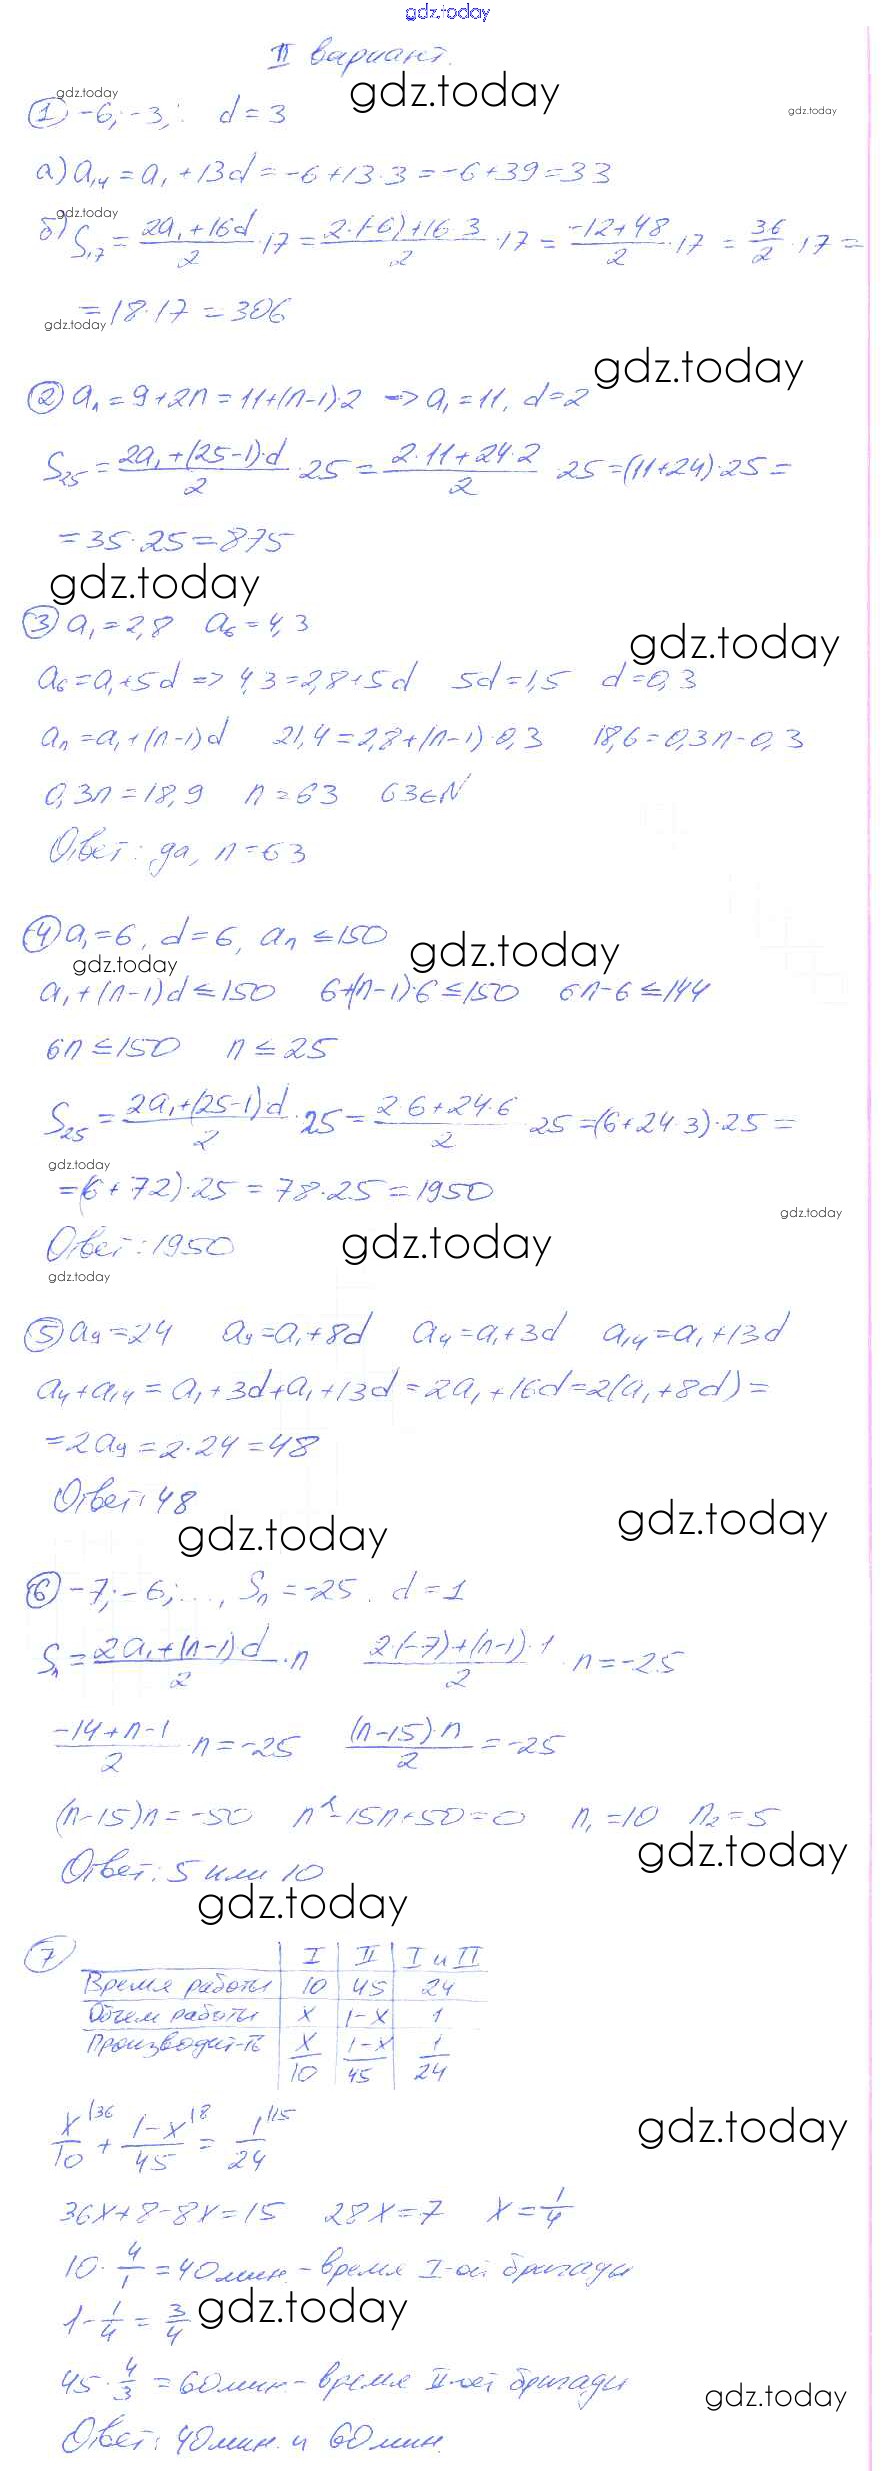 gdz.today
II вариант.
gdz.today
gdz.today
gdz.today
① -6; -3; : d = 3
а) a₁₄ = a₁ + 13d = -6 + 13·3 = -6 + 39 = 33
gdz.today
б) S₁₇ = (2a₁ + 16d)/2 · 17 = (2·(-6) + 16·3)/2 · 17 = (-12 + 48)/2 · 17 = 36/2 · 17 =
= 18·17 = 306
gdz.today
gdz.today
② aₙ = 9 + 2n = 11 + (n-1)·2 => a₁ = 11, d = 2
S₂₅ = (2a₁ + (25-1)·d)/2 · 25 = (2·11 + 24·2)/2 · 25 = (11 + 24)·25 =
= 35·25 = 875
gdz.today
③ a₁ = 2,8 a₆ = 4,3
gdz.today
a₆ = a₁ + 5d => 4,3 = 2,8 + 5d 5d = 1,5 d = 0,3
aₙ = a₁ + (n-1)d 21,4 = 2,8 + (n-1)·0,3 18,6 = 0,3n - 0,3
0,3n = 18,9 n = 63 63∈N
Ответ: да, n = 63
④ a₁ = 6, d = 6, aₙ ≤ 150
gdz.today
gdz.today
a₁ + (n-1)d ≤ 150 6 + (n-1)·6 ≤ 150 6n - 6 ≤ 144
6n ≤ 150 n ≤ 25
S₂₅ = (2a₁ + (25-1)·d)/2 · 25 = (2·6 + 24·6)/2 · 25 = (6 + 24·3)·25 =
gdz.today
= (6 + 72)·25 = 78·25 = 1950
gdz.today
Ответ: 1950
gdz.today
gdz.today
⑤ a₉ = 24 a₉ = a₁ + 8d a₄ = a₁ + 3d a₁₄ = a₁ + 13d
a₄ + a₁₄ = a₁ + 3d + a₁ + 13d = 2a₁ + 16d = 2(a₁ + 8d) =
= 2a₉ = 2·24 = 48
Ответ: 48
gdz.today
gdz.today
⑥ -7; -6; ..., Sₙ = -25. d = 1
Sₙ = (2a₁ + (n-1)d)/2 · n (2·(-7) + (n-1)·1)/2 · n = -25
(-14 + n - 1)/2 · n = -25 ((n-15)·n)/2 = -25
(n-15)n = -50 n² - 15n + 50 = 0 n₁ = 10 n₂ = 5
gdz.today
Ответ: 5 или 10
gdz.today
⑦ I II I и II
Время работы 10 45 24
Объем работы x 1-x 1
Производит-ть x/10 (1-x)/45 1/24
gdz.today
x/10 |36 + (1-x)/45 |8 = 1/24 |15
36x + 8 - 8x = 15 28x = 7 x = 1/4
10 · 4/1 = 40 мин. - время I-ой бригады
1 - 1/4 = 3/4
gdz.today
45 · 4/3 = 60 мин - время II-ой бригады
gdz.today
Ответ: 40 мин. и 60 мин.